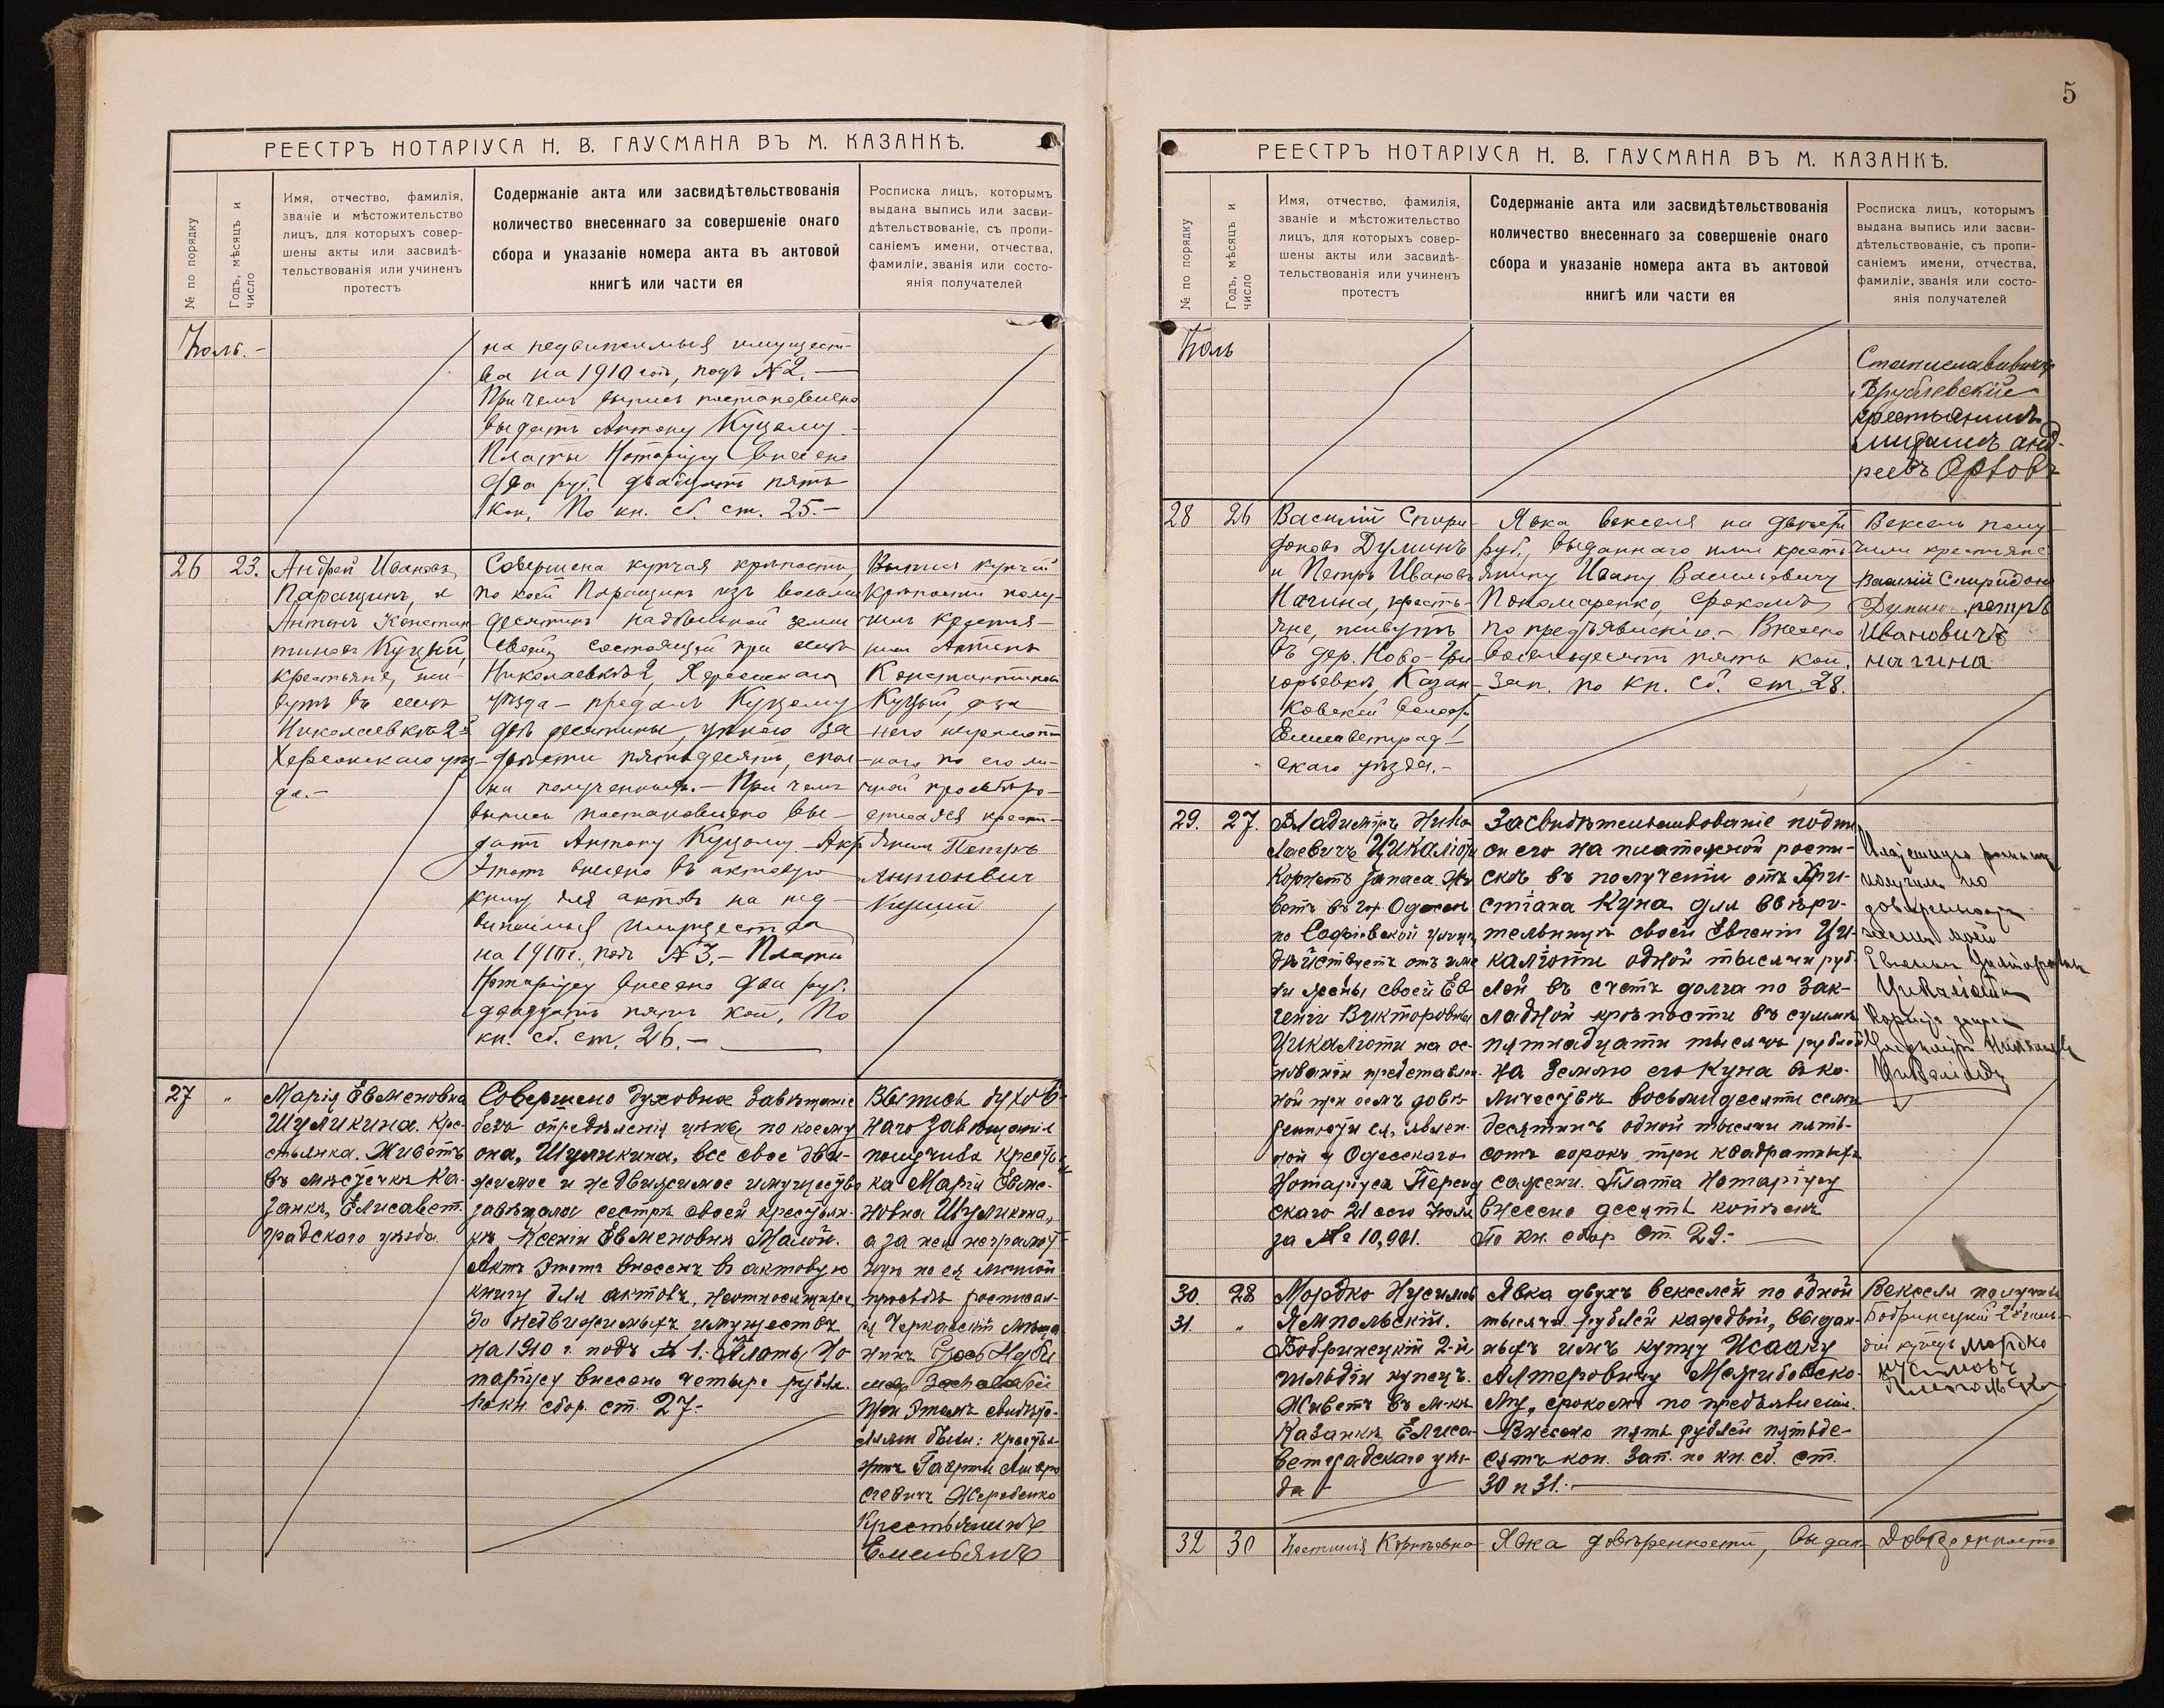 РЕЕСТРЪ НОТАРІУСА Н. В. ГАУСМАНА ВЪ М. КАЗАНКѢ.
№ по порядку
Годъ, мѣсяцъ и
число
Имя, отчество, фамилія,
званіе и мѣстожительство
лицъ, для которыхъ совер-
шены акты или засвидѣ-
тельствованія или учиненъ
протестъ
Содержаніе акта или засвидѣтельствованія
количество внесеннаго за совершеніе онаго
сбора и указаніе номера акта въ актовой
книгѣ или части ея
Росписка лицъ, которымъ
выдана выпись или засви-
дѣтельствованіе, съ пропи-
саніемъ имени, отчества,
фамиліи, званія или состо-
янія получателей
на недвижимыя имущест-
ва на 1910 годъ, подъ №2.—
При чемъ выпись постановлено
выдать Антону Куцому.
Платы Нотаріусу внесено
два руб. двадцать пять
коп. По кн. сб. ст. 25.—
26
23.
Андрей Ивановъ
Паращинъ, и
Антонъ Констан-
тиновъ Куцый,
крестьяне, жи-
вутъ въ селѣ
Николаевкѣ 2й
Херсонскаго уѣз-
да.—
Совершена купчая крѣпость,
по коей Паращинъ изъ восьми
десятинъ надѣльной земли
своей, состоящей при селѣ
Николаевкѣ 2, Херсонскаго
уѣзда — продалъ Куцому
двѣ десятины, цѣною за
двѣсти пятьдесятъ, спол-
на полученныхъ.— При чемъ
выпись постановлено вы-
дать Антону Куцому.— Актъ
этотъ внесенъ въ актовую
книгу для актовъ на нед-
вижимыя имущества
на 1910г. подъ №3.— Платы
Нотаріусу внесено два руб.
двадцать пять коп. По
кн. сб. ст. 26.—
Выпись купчей
крѣпости полу-
чилъ крестья-
нинъ Антонъ
Константиновъ
Куцый, а за
него неграмот-
наго по его ли-
чной просьбѣ ро-
списался крест-
янинъ Петръ
Антонович
Куцый
27
"
Марія Евменовна
Шуликина. Кре-
стьянка. Живетъ
въ мѣстечкѣ Ка-
занкѣ, Елисавет-
градскаго уѣзда
Совершено духовное завѣщаніе
безъ опредѣленія цѣны, по коему
она, Шуликина, все свое дви-
жимое и недвижимое имущество
завѣщала сестрѣ своей крестьян-
кѣ Ксеніи Евменовнѣ Малой.
Актъ этотъ внесенъ въ актовую
книгу для актовъ, неотносящихся
до недвижимыхъ имуществъ
на 1910 г. подъ № 1. Платы Но-
таріусу внесено четыре рубля.
По кн. сбор. ст. 27.
Выпись духов-
наго завѣщанія
получила крестьян-
ка Марія Евме-
новна Шуликина,
а за нея неграмот-
ную по ея личной
просьбѣ росписал-
ся Черкасскій мѣща-
нинъ
При этомъ свидѣте-
лями были: крестья-
нинъ Гавріилъ Амвро
сіевичъ Жеребенко
Крестьянинъ
Емельянъ
5
РЕЕСТРЪ НОТАРІУСА Н. В. ГАУСМАНА ВЪ М. КАЗАНКѢ.
№ по порядку
Годъ, мѣсяцъ и
число
Имя, отчество, фамилія,
званіе и мѣстожительство
лицъ, для которыхъ совер-
шены акты или засвидѣ-
тельствованія или учиненъ
протестъ
Содержаніе акта или засвидѣтельствованія
количество внесеннаго за совершеніе онаго
сбора и указаніе номера акта въ актовой
книгѣ или части ея
Росписка лицъ, которымъ
выдана выпись или засви-
дѣтельствованіе, съ пропи-
саніемъ имени, отчества,
фамиліи, званія или состо-
янія получателей
Врублевскій
крестьянинъ
анд-
реевъ Орловъ
28
26
Василій Спири-
доновъ Думинъ
и Петръ Ивановъ
Нагина, кресть-
яне, живутъ
въ дер. Ново-Гри-
горьевкѣ, Казан-
ковской волости,
Елисаветград-
скаго уѣзда.—
Явка векселя на двѣсти
руб., выданнаго ими кресть-
янину Ивану Васильевичу
Пономаренко, срокомъ
по предъявленію.— Внесено
восемьдесятъ пять коп.
Зап. по кн. сб. ст. 28.
Вексель полу-
чили крестьяне
Василій Спиридонов
Думин петръ
Ивановичъ
нагина
29.
27.
Владиміръ Нико-
лаевичъ Цикаліоти
Корнетъ запаса. Жи-
ветъ въ гор. Одессѣ
по Софіевской улицѣ
дѣйствуетъ отъ име-
ни жены своей Ев-
геніи Викторовны
Цикаліоти на ос-
нованіи представлен-
ной при семъ довѣ-
ренности ея, явлен-
ной у Одесскаго
Нотаріуса
21 сего Іюля
за № 10,901.
Засвидѣтельствованіе подпи-
си его на платежной роспи-
скѣ въ полученіи отъ Хри-
стіана Куна для ввѣри-
тельницы своей Евгеніи Ци-
каліоти одной тысячи руб-
лей въ счетъ долга по зак-
ладной крѣпости въ суммѣ
пятнадцати тысячъ рублей
на землю его Куна въ ко-
личествѣ восьмидесяти семи
десятинъ одной тысячи пять-
сотъ сорокъ три квадратныхъ
сажени. Плата Нотаріусу
внесено десять копѣекъ
По кн. сбор. ст. 29.—
получилъ по
довѣренности
жены моей
Цикаліоти
30.
31.
28
"
Мордко Нусимов
Ямпольскій.
Бобринецкій 2-й
гильдіи купецъ.
Живетъ въ м-кѣ
Казанкѣ, Елиса-
ветградскаго уѣз-
да
Явка двухъ векселей по одной
тысячѣ рублей каждый, выдан-
ныхъ имъ купцу Исааку
Алтеровичу Межибовско-
му, срокомъ по предъявленіи.
Внесено пять рублей пятьде-
сятъ коп. Зап. по кн. сб. ст.
30 и 31.—
Векселя получилъ
Бобринецкій 2й гиль-
діи купецъ Мордко
Нусимовъ
Ямпольскій
32
30
Явка довѣренности, выдан-
Довѣренность